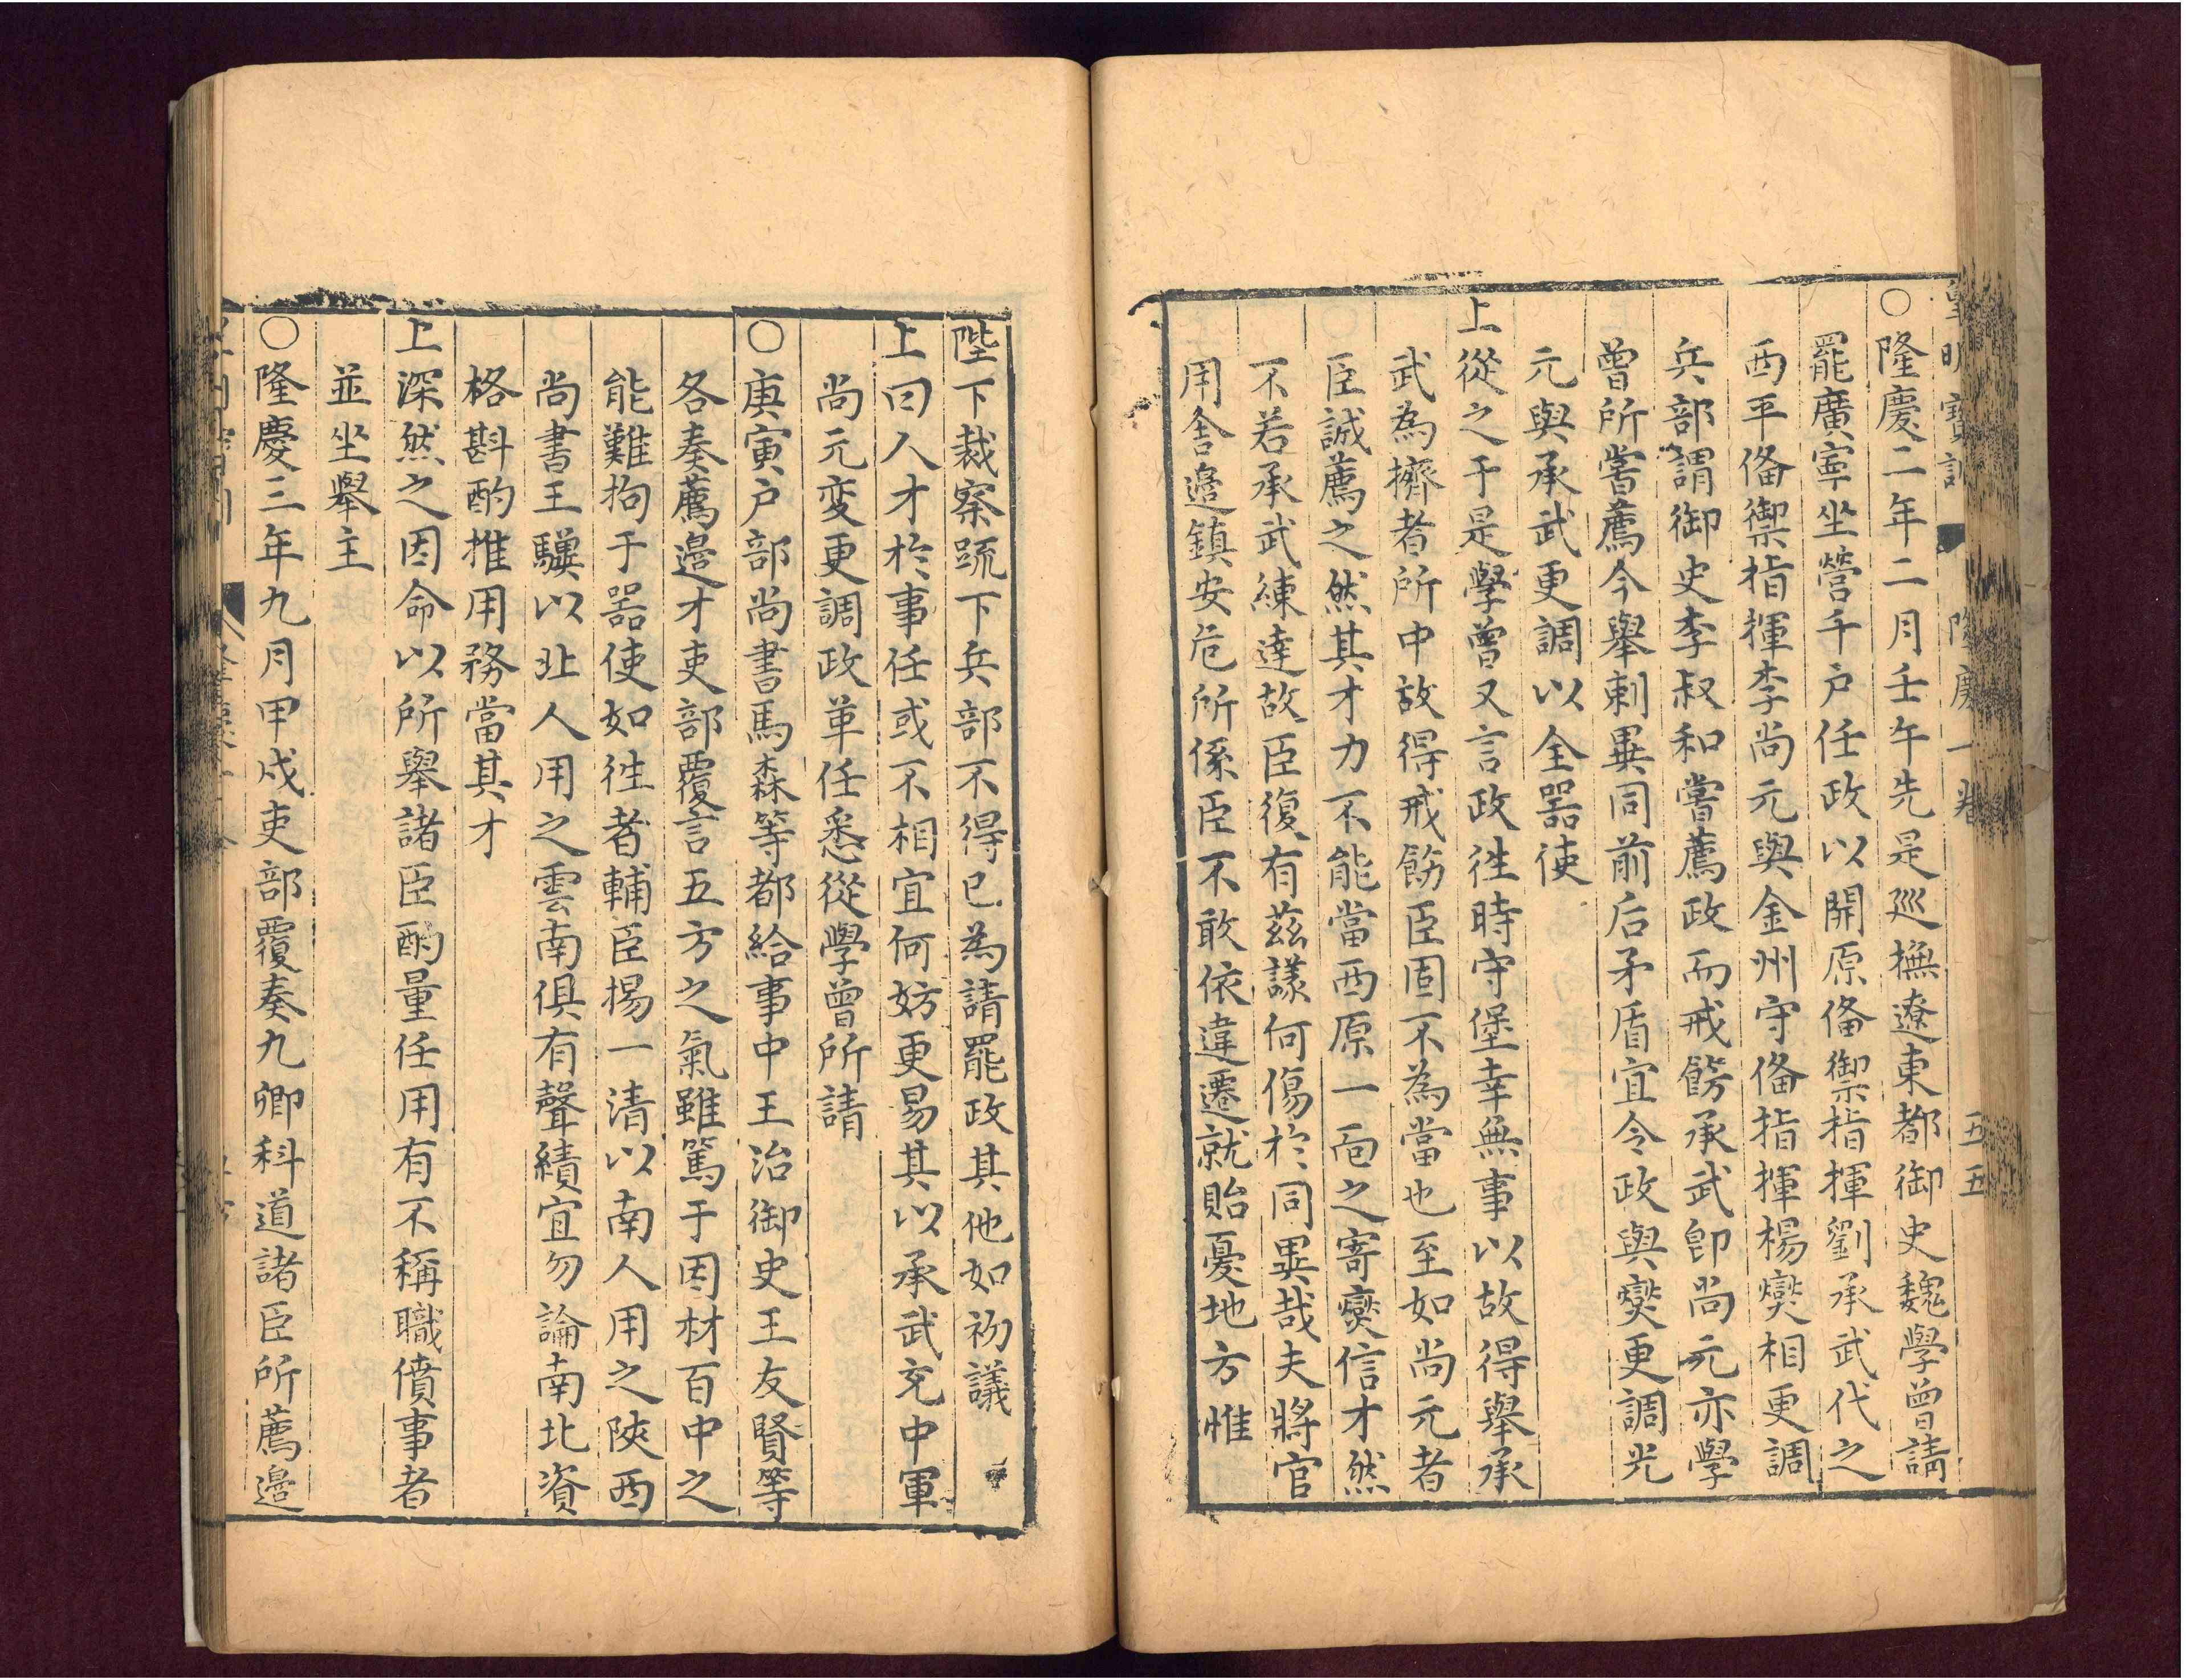 皇明寶訓 隆慶一卷 五五
○隆慶二年二月壬午先是廵撫遼東都御史魏學曾請
罷廣寧坐營千户任政以開原俻禦指揮劉承武代之
西平俻禦指揮李尚元與金州守俻指揮楊爕相更調
兵部謂御史李叔和嘗薦政而戒飭承武即尚元亦學
曾所嘗薦今舉刺異同前后矛盾宜令政與爕更調光
元與承武更調以全噐使
上從之于是學曾又言政徃時守堡幸無事以故得舉承
武為擠者所中故得戒飭臣固不為當也至如尚元者
臣誠薦之然其才力不能當西原一面之寄爕信才然
不若承武練達故臣復有茲議何傷於同異哉夫將官
用舍邉鎮安危所係臣不敢依違遷就貽憂地方惟
陛下裁察疏下兵部不得已為請罷政其他如初議
上曰人才於事任或不相宜何妨更易其以承武充中軍
尚元変更調政革任悉從學曾所請
○庚寅户部尚書馬森等都給事中王治御史王友賢等
各奏薦邉才吏部覆言五方之氣雖篤于因材百中之
能難拘于噐使如徃者輔臣楊一清以南人用之陝西
尚書王驥以北人用之雲南俱有聲績宜勿論南北資
格斟酌推用務當其才
上深然之因命以所舉諸臣酌量任用有不稱職僨事者
並坐舉主
○隆慶三年九月甲戌吏部覆奏九卿科道諸臣所薦邉